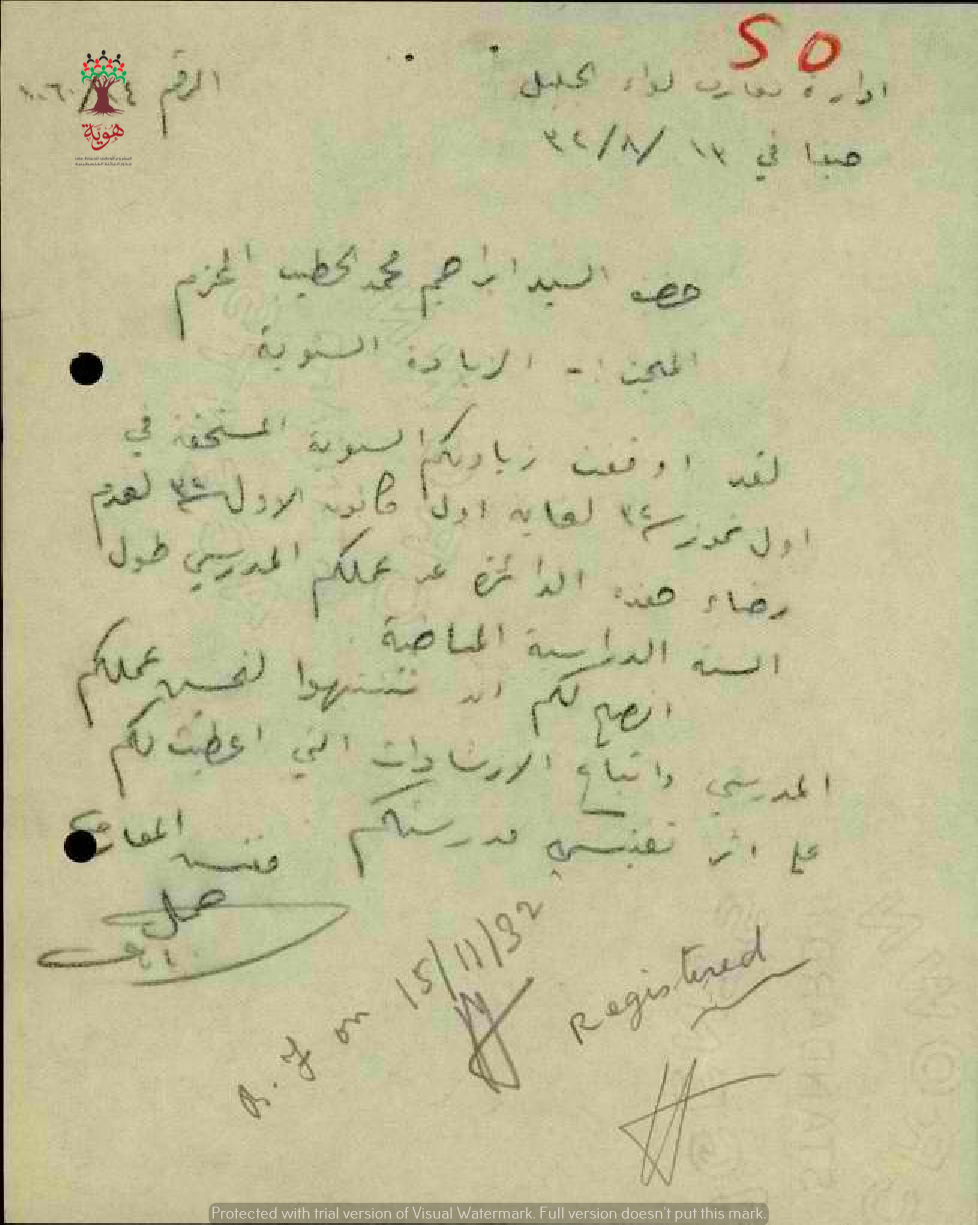 50
ادارة معارف لواء الجليل
الرقم
حيفا في ١٣ /٨/٣٢
هوية
حضرة السيد ابراهيم محمد الخطيب المحترم
المبحث :- الزيادة السنوية
لقد اوقفت زيادتكم السنوية المستحقة في
اول تموز سنة ٣٢ لغاية اول كانون الاول سنة ٣٢ لعدم
رضاء هذه الدائرة عن عملكم المدرسي طول
السنة الدراسية الماضية
انصح لكم ان تنتبهوا لتحسين عملكم
المدرسي واتباع الارشادات التي اعطيت لكم
على اثر تفتيشي مدرستكم
مفتش المعارف
B. F on 15/11/32
Registered
Protected with trial version of Visual Watermark. Full version doesn't put this mark.